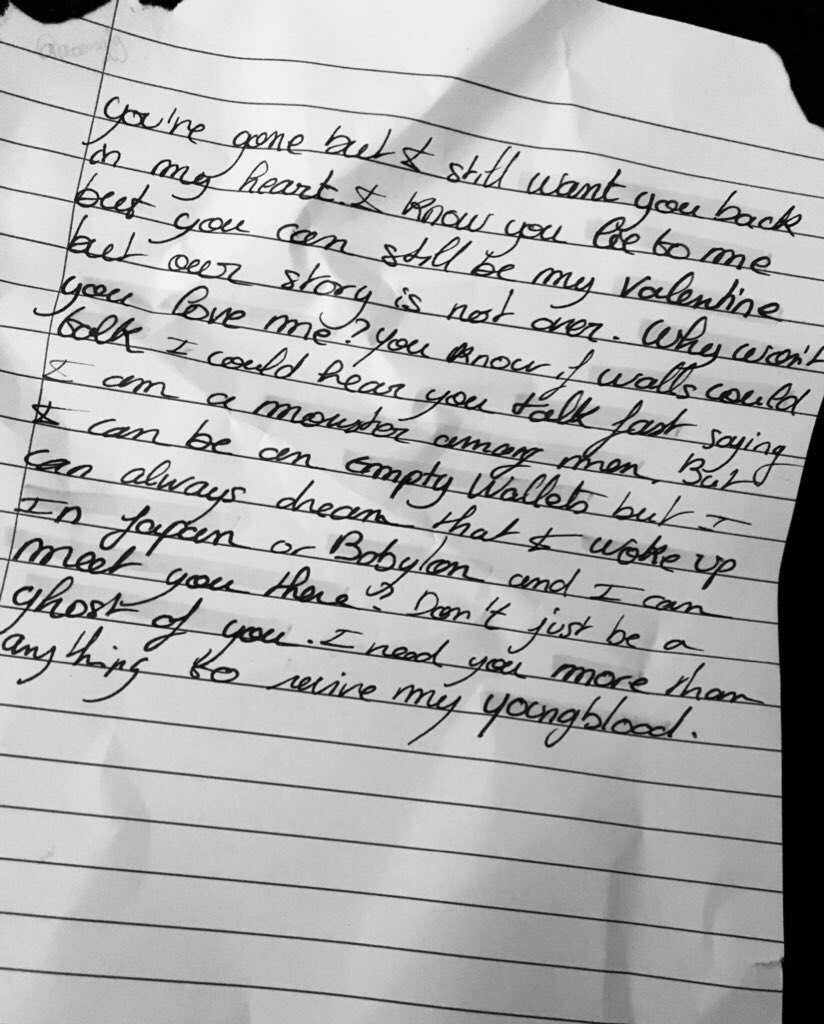 you're gone but I still want you back
in my heart. I know you lie to me
but you can still be my valentine
but our story is not over. Why won't
you love me? you know if walls could
talk I could hear you talk fast saying
I am a monster among men. But
I can be an Empty Wallets but I
can always dream that I woke up
In Japan or Babylon and I can
meet you there? Don't just be a
ghost of you. I need you more than
anything to revive my youngblood.